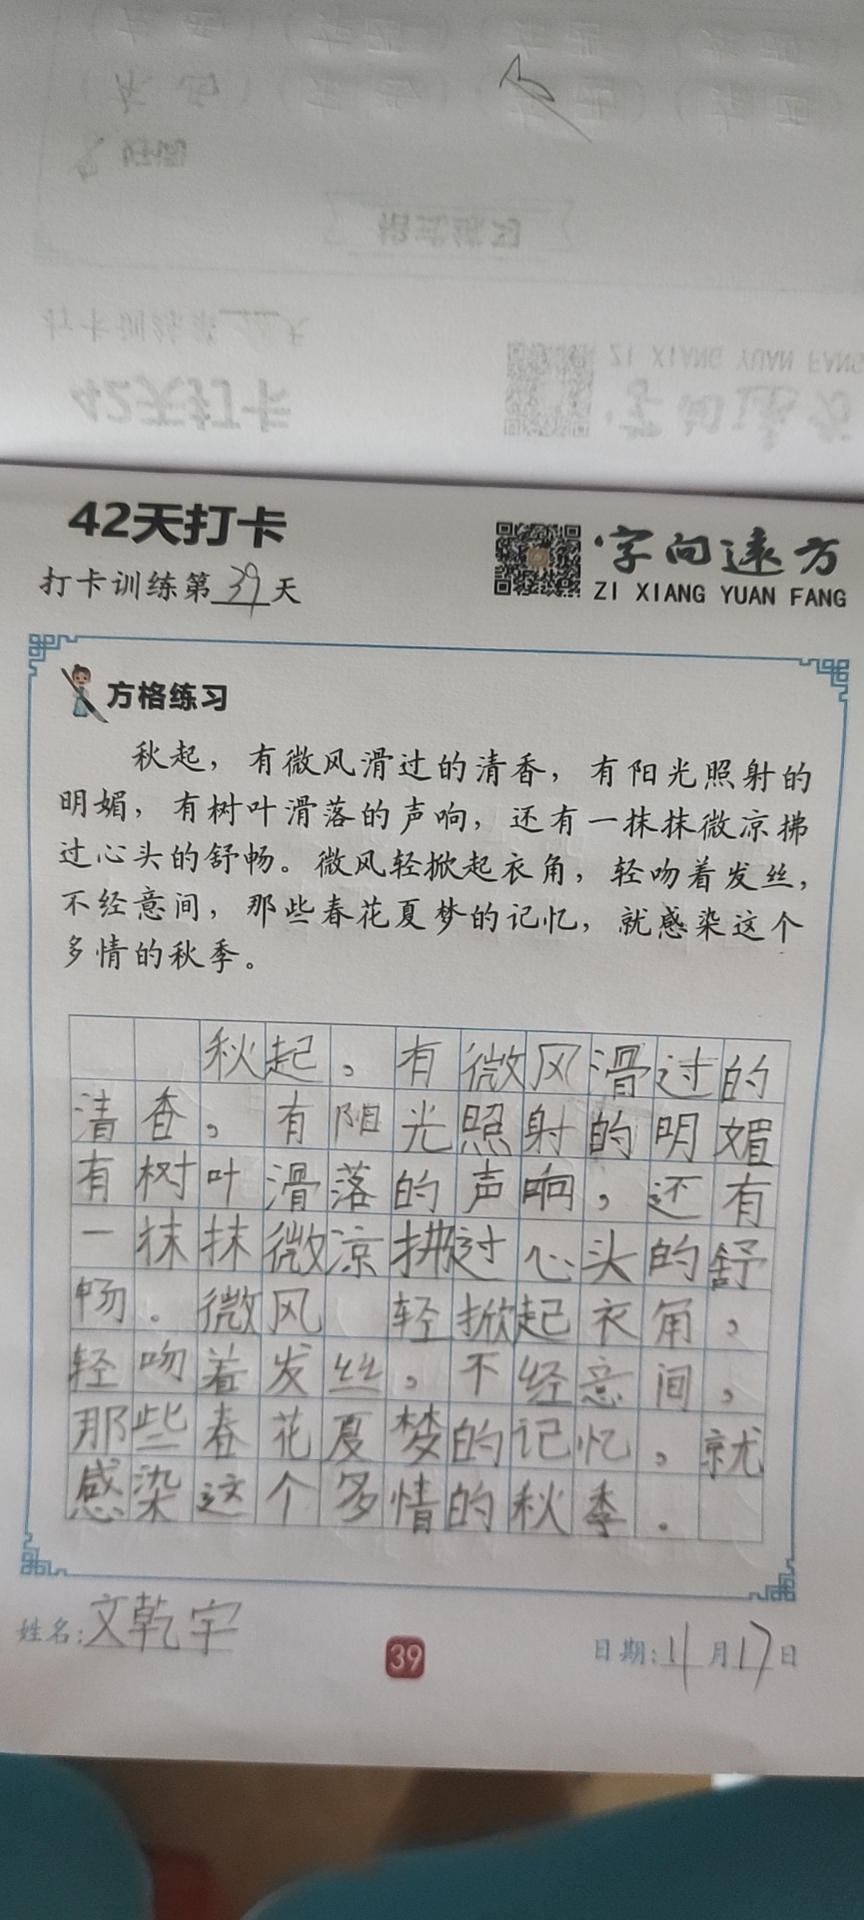 42天打卡
字向远方
ZI XIANG YUAN FANG
打卡训练第39天
方格练习
秋起，有微风滑过的清香，有阳光照射的
明媚，有树叶滑落的声响，还有一抹抹微凉拂
过心头的舒畅。微风轻掀起衣角，轻吻着发丝，
不经意间，那些春花夏梦的记忆，就感染这个
多情的秋季。
秋起，有微风滑过的
清香，有阳光照射的明媚
有树叶滑落的声响，还有
一抹抹微凉拂过心头的舒
畅。微风 轻掀起衣角，
轻吻着发丝，不经意间，
那些春花夏梦的记忆，就
感染这个多情的秋季.
姓名:文乾宇
39
日期:11月17日